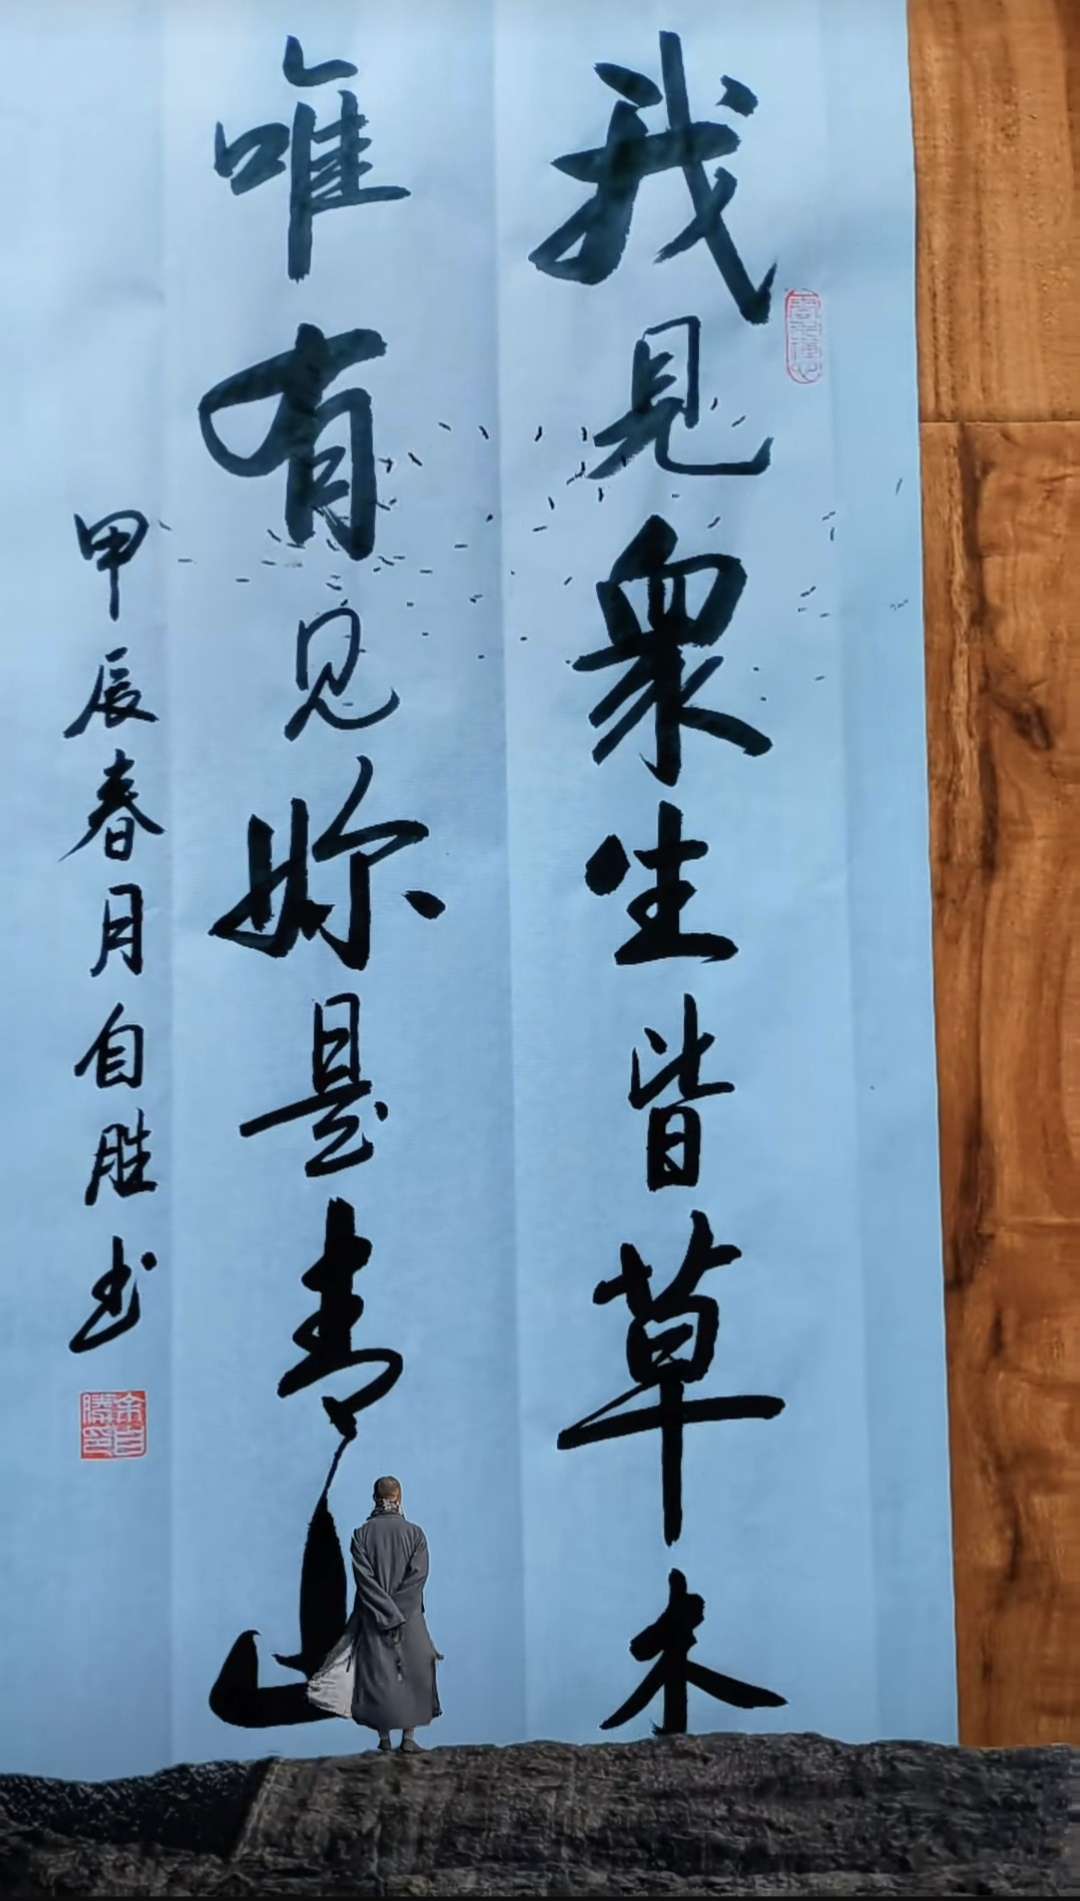 我見衆生皆草木
唯有见妳是青山
甲辰春月自胜书
余自勝印